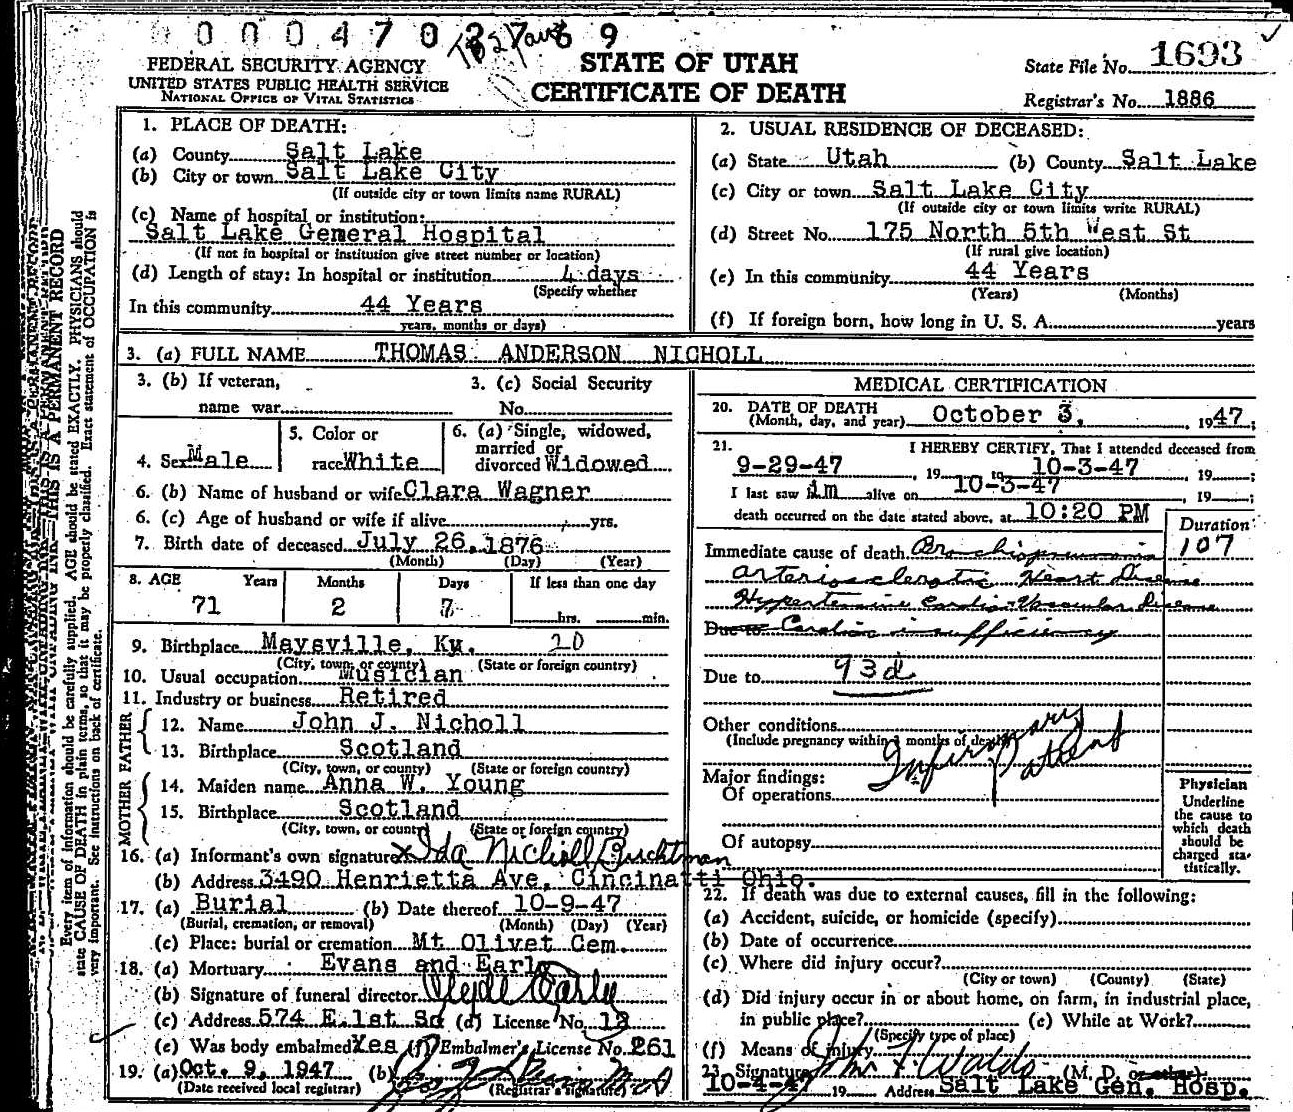 0 0 0 4 7 0 2 7 6 9
FEDERAL SECURITY AGENCY
UNITED STATES PUBLIC HEALTH SERVICE
NATIONAL OFFICE OF VITAL STATISTICS
STATE OF UTAH
CERTIFICATE OF DEATH
State File No. 1693
Registrar's No. 1886
1. PLACE OF DEATH:
(a) County Salt Lake
(b) City or town Salt Lake City
(If outside city or town limits name RURAL)
(c) Name of hospital or institution:
Salt Lake General Hospital
(If not in hospital or institution give street number or location)
(d) Length of stay: In hospital or institution 4 days
(Specify whether
In this community 44 Years
years, months or days)
2. USUAL RESIDENCE OF DECEASED:
(a) State Utah (b) County Salt Lake
(c) City or town Salt Lake City
(If outside city or town limits write RURAL)
(d) Street No. 175 North 5th West St
(If rural give location)
(e) In this community 44 Years
(Years) (Months)
(f) If foreign born, how long in U. S. A. years
3. (a) FULL NAME THOMAS ANDERSON NICHOLL
3. (b) If veteran,
name war
3. (c) Social Security
No.
4. Sex Male
5. Color or
race White
6. (a) Single, widowed,
married or
divorced Widowed
6. (b) Name of husband or wife Clara Wagner
6. (c) Age of husband or wife if alive yrs.
7. Birth date of deceased July 26, 1876
(Month) (Day) (Year)
8. AGE Years Months Days If less than one day
71 2 7 hrs. min.
9. Birthplace Maysville, Ky. 20
(City, town, or county) (State or foreign country)
10. Usual occupation Musician
11. Industry or business Retired
FATHER
12. Name John J. Nicholl
13. Birthplace Scotland
(City, town, or county) (State or foreign country)
MOTHER
14. Maiden name Anna W. Young
15. Birthplace Scotland
(City, town, or county) (State or foreign country)
16. (a) Informant's own signature x Ida Nicholl
(b) Address 3490 Henrietta Ave, Cincinatti Ohio.
17. (a) Burial (b) Date thereof 10-9-47
(Burial, cremation, or removal) (Month) (Day) (Year)
(c) Place: burial or cremation Mt Olivet Cem.
18. (a) Mortuary Evans and Early
(b) Signature of funeral director Clyde Early
(c) Address 574 E. 1st So (d) License No. 13
(e) Was body embalmed Yes (f) Embalmer's License No. 261
19. (a) Oct. 9, 1947 (b)
(Date received local registrar) (Registrar's signature)
MEDICAL CERTIFICATION
20. DATE OF DEATH
(Month, day, and year) October 3, 1947;
21. I HEREBY CERTIFY, That I attended deceased from
9-29-47, 19 to 10-3-47, 19 ;
I last saw im alive on 10-3-47, 19 ;
death occurred on the date stated above, at 10:20 PM
Duration
107
Immediate cause of death Bronchopneumonia
arteriosclerotic Heart Disease
Hypertensive Cardio-Vascular Disease
Due to Cardiac insufficiency
Due to 93d
Other conditions
(Include pregnancy within 3 months of death)
Infirmary
patient
Major findings:
Of operations
Of autopsy
Physician
Underline
the cause to
which death
should be
charged sta-
tistically.
22. If death was due to external causes, fill in the following:
(a) Accident, suicide, or homicide (specify)
(b) Date of occurrence
(c) Where did injury occur?
(City or town) (County) (State)
(d) Did injury occur in or about home, on farm, in industrial place,
in public place? (e) While at Work?
(Specify type of place)
(f) Means of Injury
23. Signature (M. D. or other)
10-4-47 19 Address Salt Lake Gen. Hosp.
THIS IS A PERMANENT RECORD
Every item of information should be carefully supplied. AGE should be stated EXACTLY. PHYSICIANS should
state CAUSE OF DEATH in plain terms, so that it may be properly classified. Exact statement of OCCUPATION is
very important. See instructions on back of certificate.